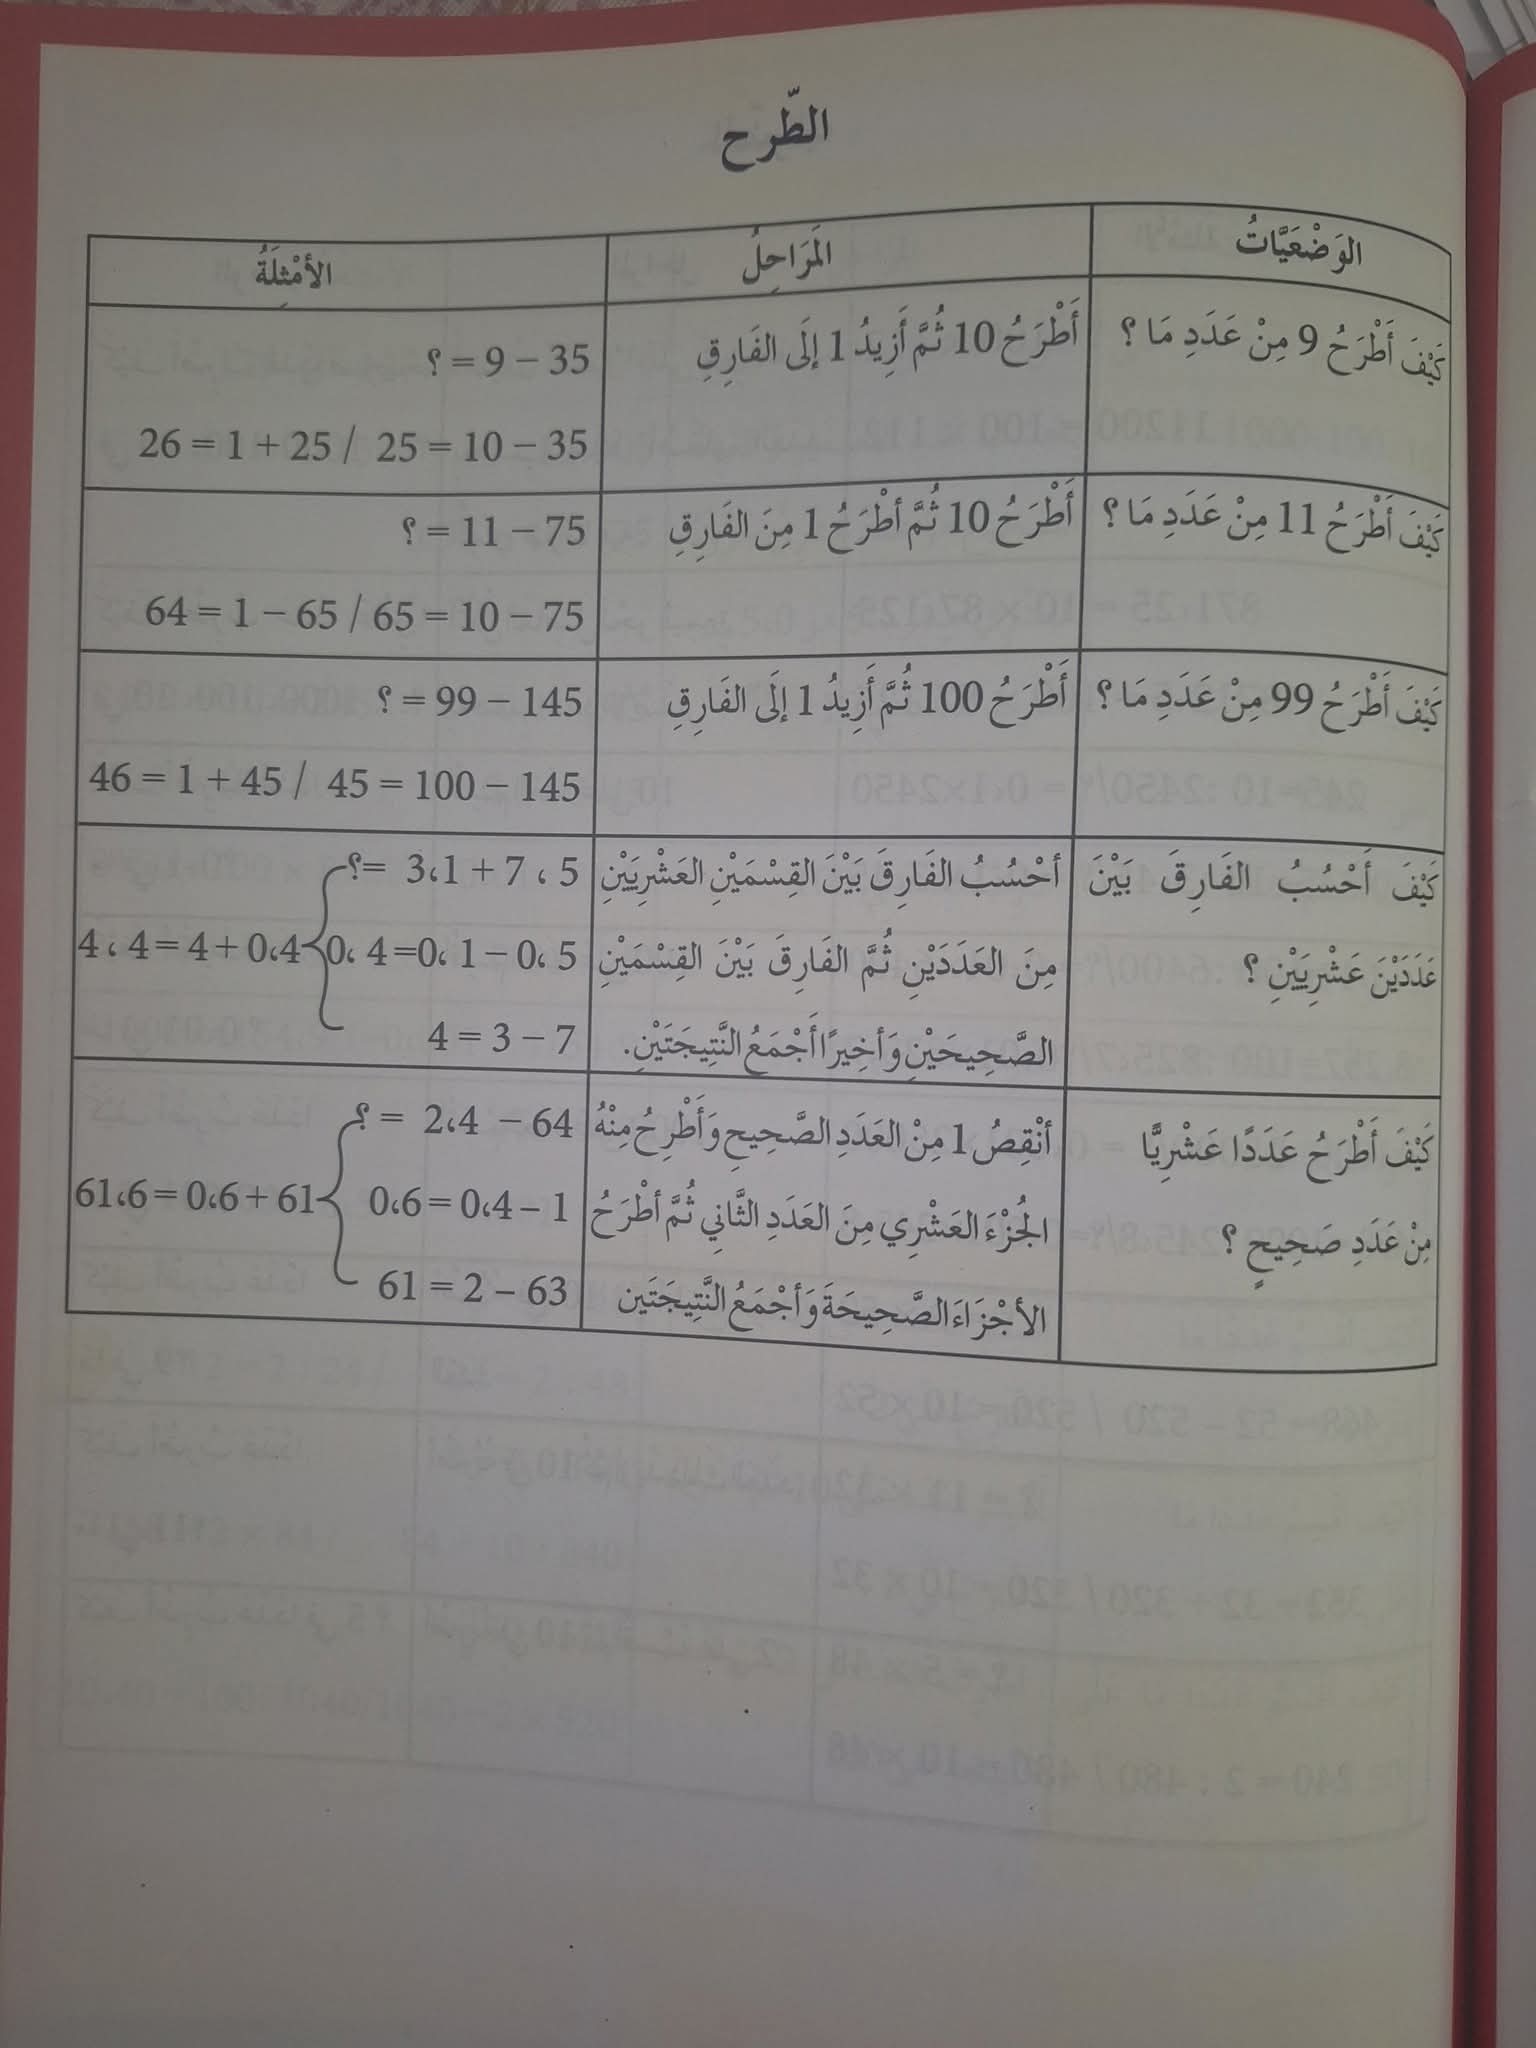 الطّرح
الوَضْعَيَّاتُ
المَرَاحِلُ
الأمْثِلَةُ
كَيْفَ أَطْرَحُ 9 مِنْ عَدَدِ مَا ؟
أَطْرَحُ 10 ثُمَّ أَزِيدُ 1 إلَى الفَارِقِ
35 – 9 = ؟
35 – 10 = 25 / 25 + 1 = 26
كَيْفَ أَطْرَحُ 11 مِنْ عَدَدِ مَا ؟
أَطْرَحُ 10 ثُمَّ أطْرَحُ 1 مِنَ الفَارِقِ
75 – 11 = ؟
75 – 10 = 65 / 65 – 1 = 64
كَيْفَ أَطْرَحُ 99 مِنْ عَدَدِ مَا ؟
أَطْرَحُ 100 ثُمَّ أَزِيدُ 1 إلَى الفَارِقِ
145 – 99 = ؟
145 – 100 = 45 / 45 + 1 = 46
كَيْفَ أَحْسُبُ الفَارِقَ بَيْنَ
عَدَدَيْنَ عَشْرِيَيْنِ ؟
أحْسُبُ الفَارِقَ بَيْنَ القِسْمَيْنِ العَشْرِيَيْنِ
مِنَ العَدَدَيْنِ ثُمَّ الفَارِقَ بَيْنَ القِسْمَيْنِ
الصَّحِيحَيْنِ وَأخِيرًا أَجْمَعُ النَّتِيجَتَيْنِ.
5 ، 7 + 3،1 =؟
5 ،0 – 1 ،0= 4 ،0
0،4 + 4 = 4 ، 4
7 – 3 = 4
كَيْفَ أَطْرَحُ عَدَدًا عَشْرِيًّا
مِنْ عَدَدِ صَحِيحٍ ؟
أنْقِصُ 1 مِنْ العَدَدِ الصَّحِيحِ وَأَطْرِحُ مِنْهُ
الجُزْءَ العَشْرِي مِنَ العَدَدِ الثَّانِي ثُمَّ أطْرَحُ
الأجْزَاءَ الصَّحِيحَةَ وَأجْمَعُ النَّتِيجَتَين
64 – 2،4 = ؟
1 – 0،4 = 0،6
61 + 0،6 = 61،6
63 – 2 = 61